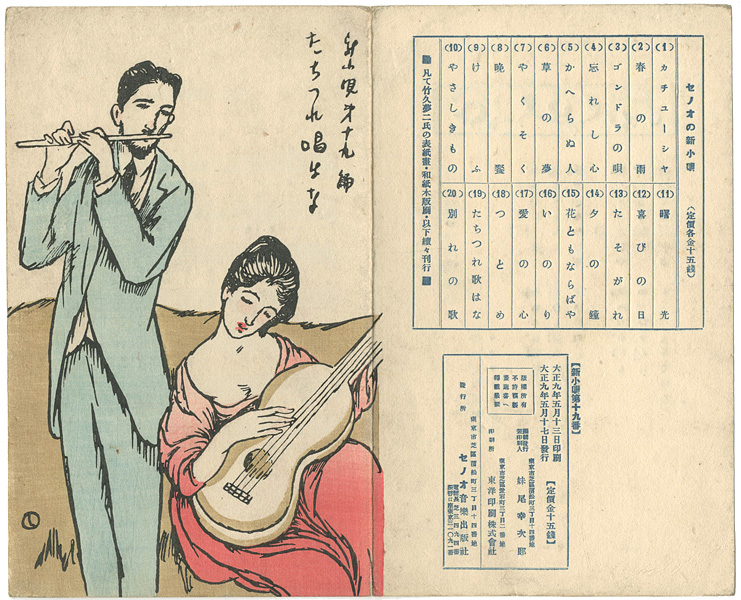 セノオの新小唄 (定價各金十五錢)
(1)カチューシヤ
(2)春の雨
(3)ゴンドラの唄
(4)忘れし心
(5)かへらぬ人
(6)草の夢
(7)やくそく
(8)晩鐘
(9)けふ
(10)やさしきもの
(11)曙光
(12)喜びの日
(13)たそがれ
(14)夕の鐘
(15)花ともならばや
(16)いのり
(17)愛の心
(18)つとめ
(19)たちつれ歌はな
(20)別れの歌
凡て竹久夢二氏の表紙畫・和紙木版刷・以下續々刊行
【新小唄第十九番】
大正九年五月十三日印刷
大正九年五月十七日發行
【定價金十五錢】
版權所有
不許複製
東京市芝區
妹尾幸次郎
印刷所
東洋印刷株式會社
發行所
東京市芝區 三丁目十四番地
セノオ音樂出版社
新小唄 第十九編
たちつれ唱はな